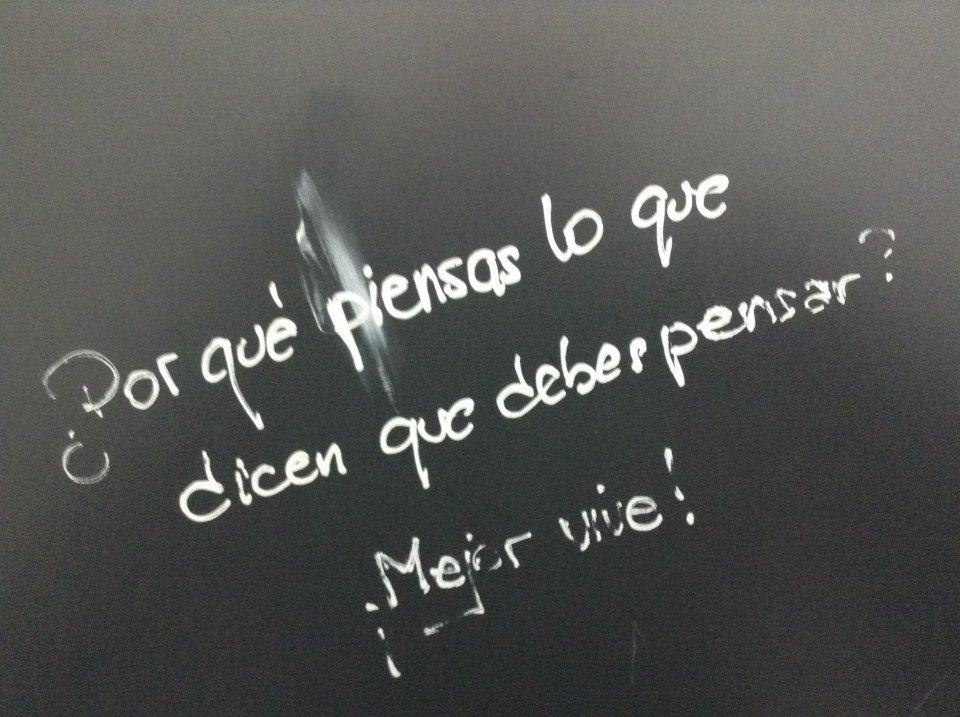 ¿Por qué piensas lo que
dicen que debes pensar?
¡Mejor vive!